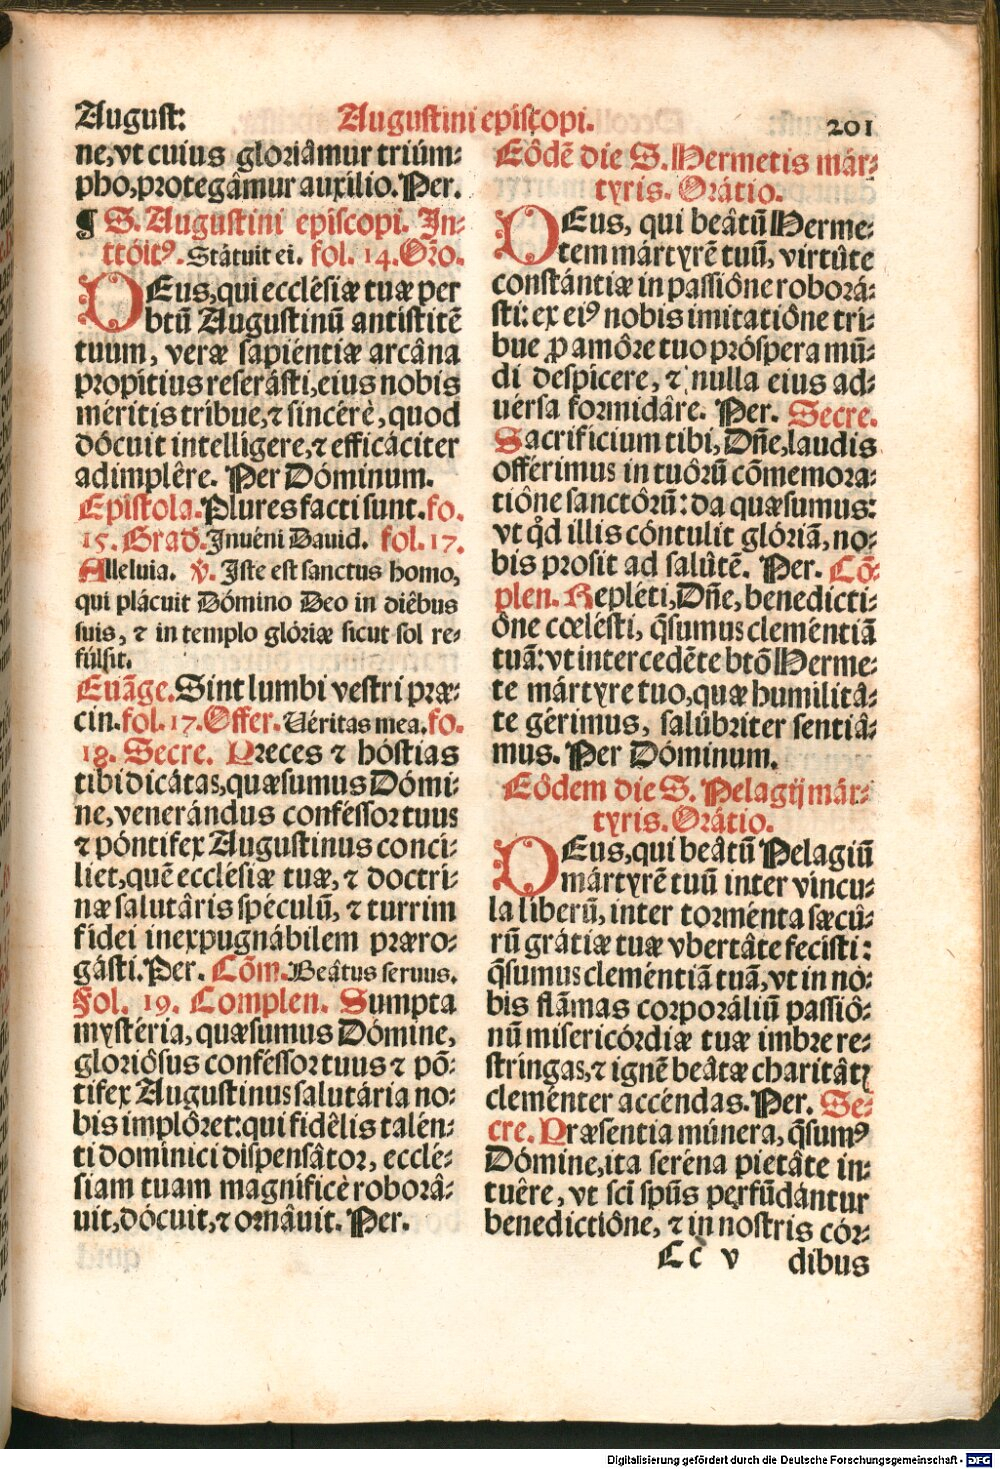 August:
Augustini episcopi.
201
ne, vt cuius gloriâmur triúm:
pho, protegâmur auxilio. Per.
¶ S. Augustini episcopi. In:
trôitꝰ. Státuit ei. fol. 14. Orõ.
DEus, qui ecclésiæ tuæ per
btũ Augustinũ antistitẽ
tuum, veræ sapiéntiæ arcâna
propitius reserásti, eius nobis
méritis tribue, ⁊ sincérè, quod
dócuit intellígere, ⁊ efficáciter
adimplêre. Per Dóminum.
Epístola. Plures facti sunt. fo.
15. Grad. Inuéni Dauid. fol. 17.
Alleluia. ℣. Iste est sanctus homo,
qui plácuit Dómino Deo in diêbus
suis, ⁊ in templo glóriæ sicut sol re:
fúlsit.
Euãge. Sint lumbi vestri præ:
cin. fol. 17. Offer. Uéritas mea. fo.
18. Secre. Preces ⁊ hóstias
tibi dicátas, quæsumus Dómi:
ne, venerándus conféssor tuus
⁊ póntifex Augustinus conci:
liet, quẽ ecclésiæ tuæ, ⁊ doctri:
næ salutâris spéculũ, ⁊ turrim
fidei inexpugnábilem præro:
gásti. Per. Cõm. Beâtus seruus.
Fol. 19. Complen. Sumpta
mystéria, quæsumus Dómine,
gloriôsus conféssor tuus ⁊ põ:
tifex Augustinus salutária no:
bis implôret: qui fidêlis talén:
ti dominici dispensâtor, ecclé:
siam tuam magnificè roborâ:
uit, dócuit, ⁊ ornâuit. Per.
Eôdẽ die S. Hermetis már:
tyris. Orâtio.
DEus, qui beâtũ Herme:
tem mártyrẽ tuũ, virtûte
constántiæ in passiône roborá:
sti: ex eiꝰ nobis imitatiône tri:
bue ꝓ amôre tuo próspera mũ:
di despicere, ⁊ nulla eius ad:
uérsa formidâre. Per. Secre.
Sacrificium tibi, Dñe, laudis
offérimus in tuôrũ cõmemora:
tiône sanctôrũ: da quæsumus:
vt qđ illis cóntulit glóriã, no:
bis prosit ad salûtẽ. Per. Cõ:
plen. Repléti, Dñe, benedicti:
ône cœlésti, q̃sumus cleméntiã
tuã: vt intercedẽte btõ Herme:
te mártyre tuo, quæ humilitâ:
te gérimus, salúbriter sentiâ:
mus. Per Dóminum.
Eôdem die S. Pelagij már:
tyris. Orâtio.
DEus, qui beâtũ Pelagiũ
mártyrẽ tuũ inter víncu:
la liberũ, inter torménta sæcú:
rũ grátiæ tuæ vbertâte fecísti:
q̃sumus cleméntiã tuã, vt in no:
bis flãmas corporáliũ passiô:
nũ misericórdiæ tuæ imbre re:
stringas, ⁊ ignẽ beâtæ charitâtꝭ
cleménter accéndas. Per. Se:
cre. Præsentia múnera, q̃sumꝰ
Dómine, ita seréna pietâte in:
tuêre, vt sci̇̃ spũs perfũdántur
benedictiône, ⁊ in nostris cór:
Cc v
dibus
Digitalisierung gefördert durch die Deutsche Forschungsgemeinschaft - DFG